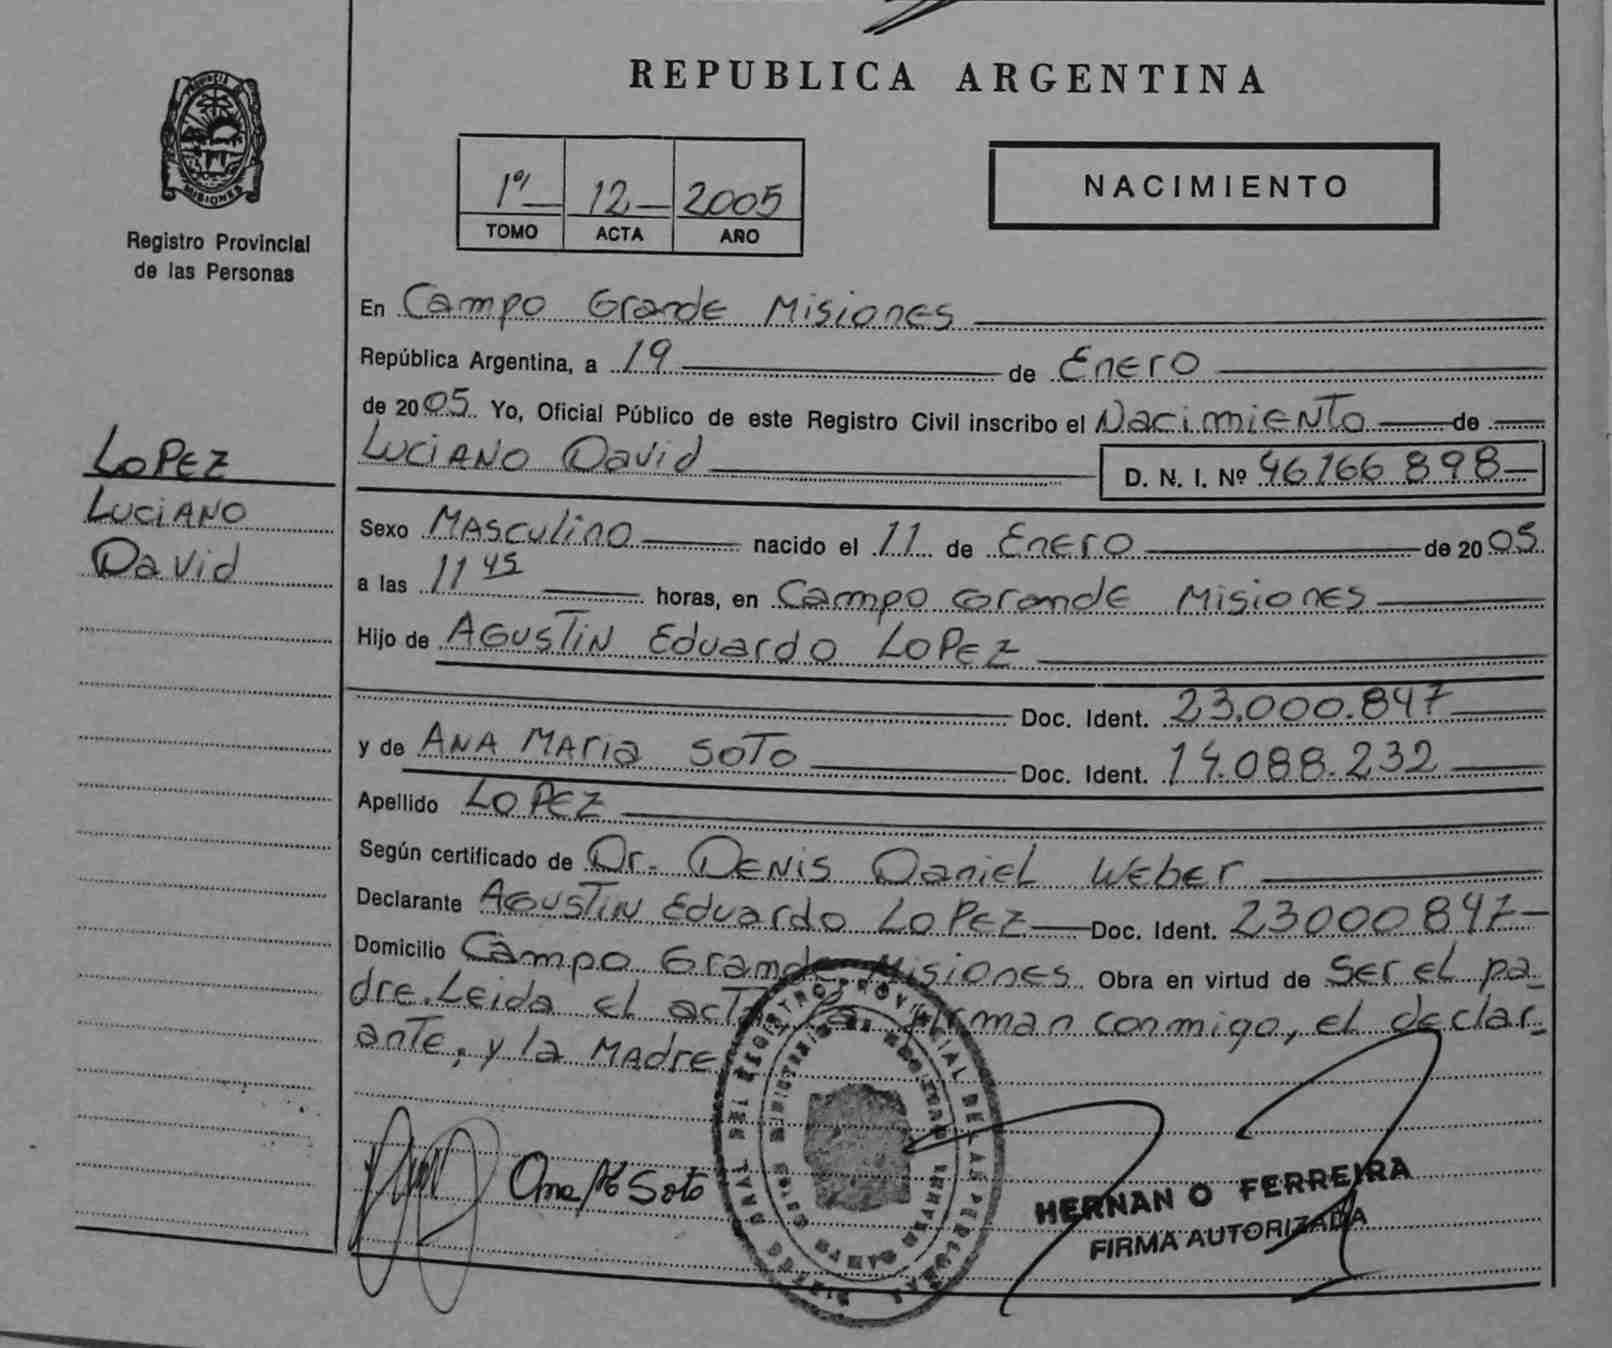 REPUBLICA ARGENTINA
PROVINCIA
MISIONES
Registro Provincial
de las Personas
1º 12 2005
TOMO ACTA AÑO
NACIMIENTO
LOPEZ
LUCIANO
David
En Campo Grande Misiones
República Argentina, a 19 de Enero
de 2005 Yo, Oficial Público de este Registro Civil inscribo el Nacimiento de
LUCIANO David
D. N. I. Nº 46166 898
Sexo Masculino nacido el 11 de Enero de 2005
a las 11 45 horas, en Campo Grande Misiones
Hijo de AGUSTIN Eduardo LOPEZ
Doc. Ident. 23.000.847
y de ANA MARia SOTO Doc. Ident. 14.088.232
Apellido LOPEZ
Según certificado de Dr. DENIS Daniel Weber
Declarante AGUSTIN Eduardo LOPEZ Doc. Ident. 23000847
Domicilio Campo Grande Misiones Obra en virtud de Ser el pa-
dre. Leida el acta, la firman conmigo, el declar-
ante, y la Madre
REGISTRO PROVINCIAL DE LAS PERSONAS
Ana Mª Soto
HERNAN O FERREIRA
FIRMA AUTORIZADA